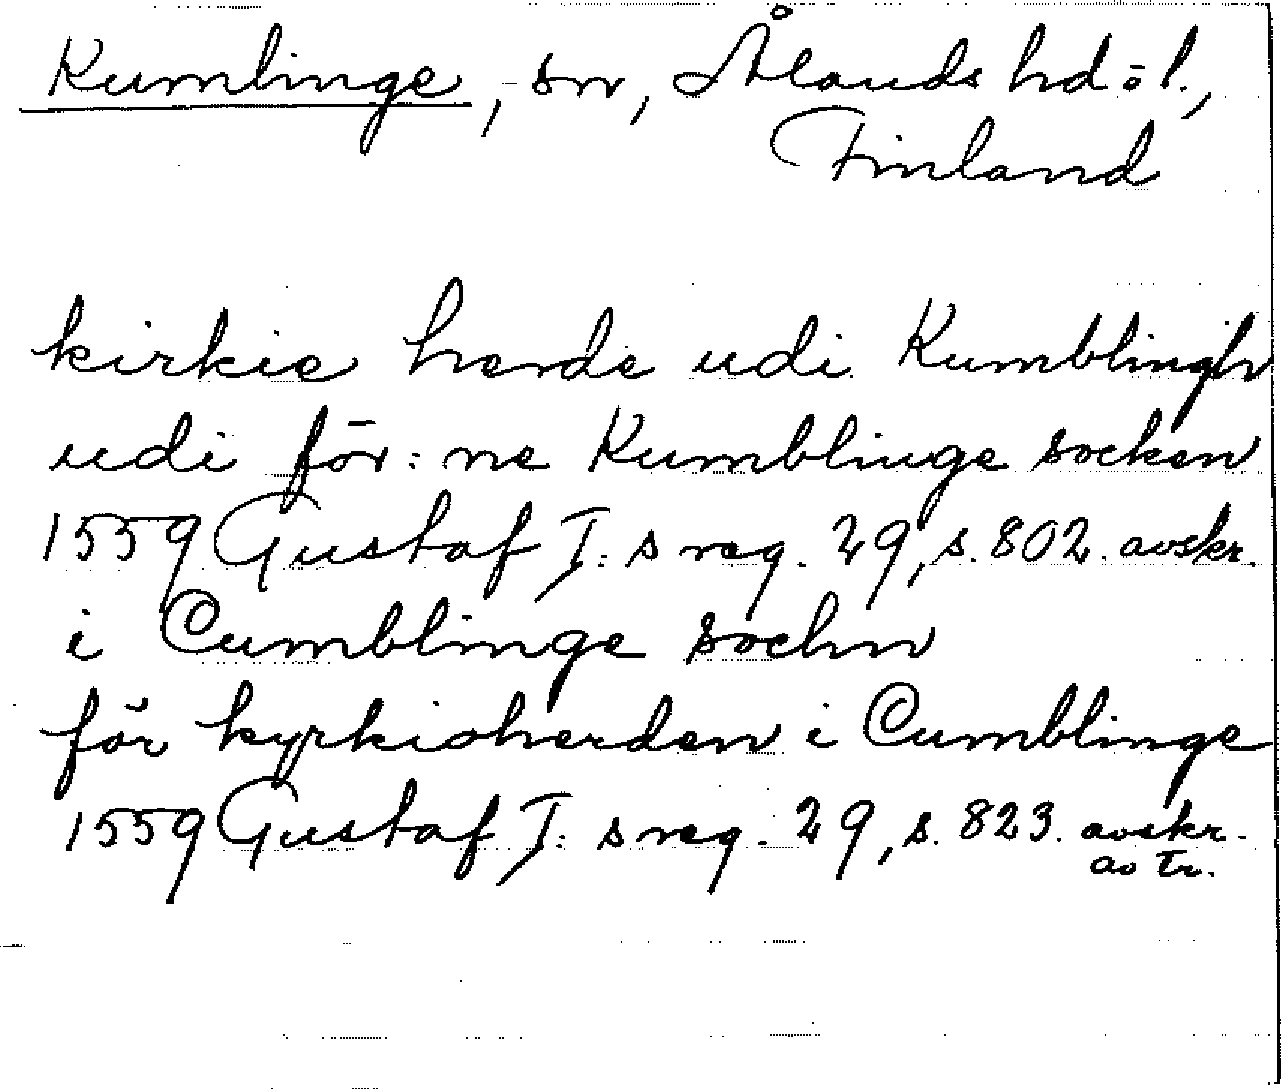 Kumlinge, sn, Ålands hd o l.,
Finland
kirkie herde udi Kumblingh
udi för:ne Kumblinge socken
1559 Gustaf I:s reg. 29, s. 802. avskr.
i Cumblinge sochn
för kyrkioherden i Cumblinge
1559 Gustaf I:s reg. 29, s. 823. avskr.
av tr.